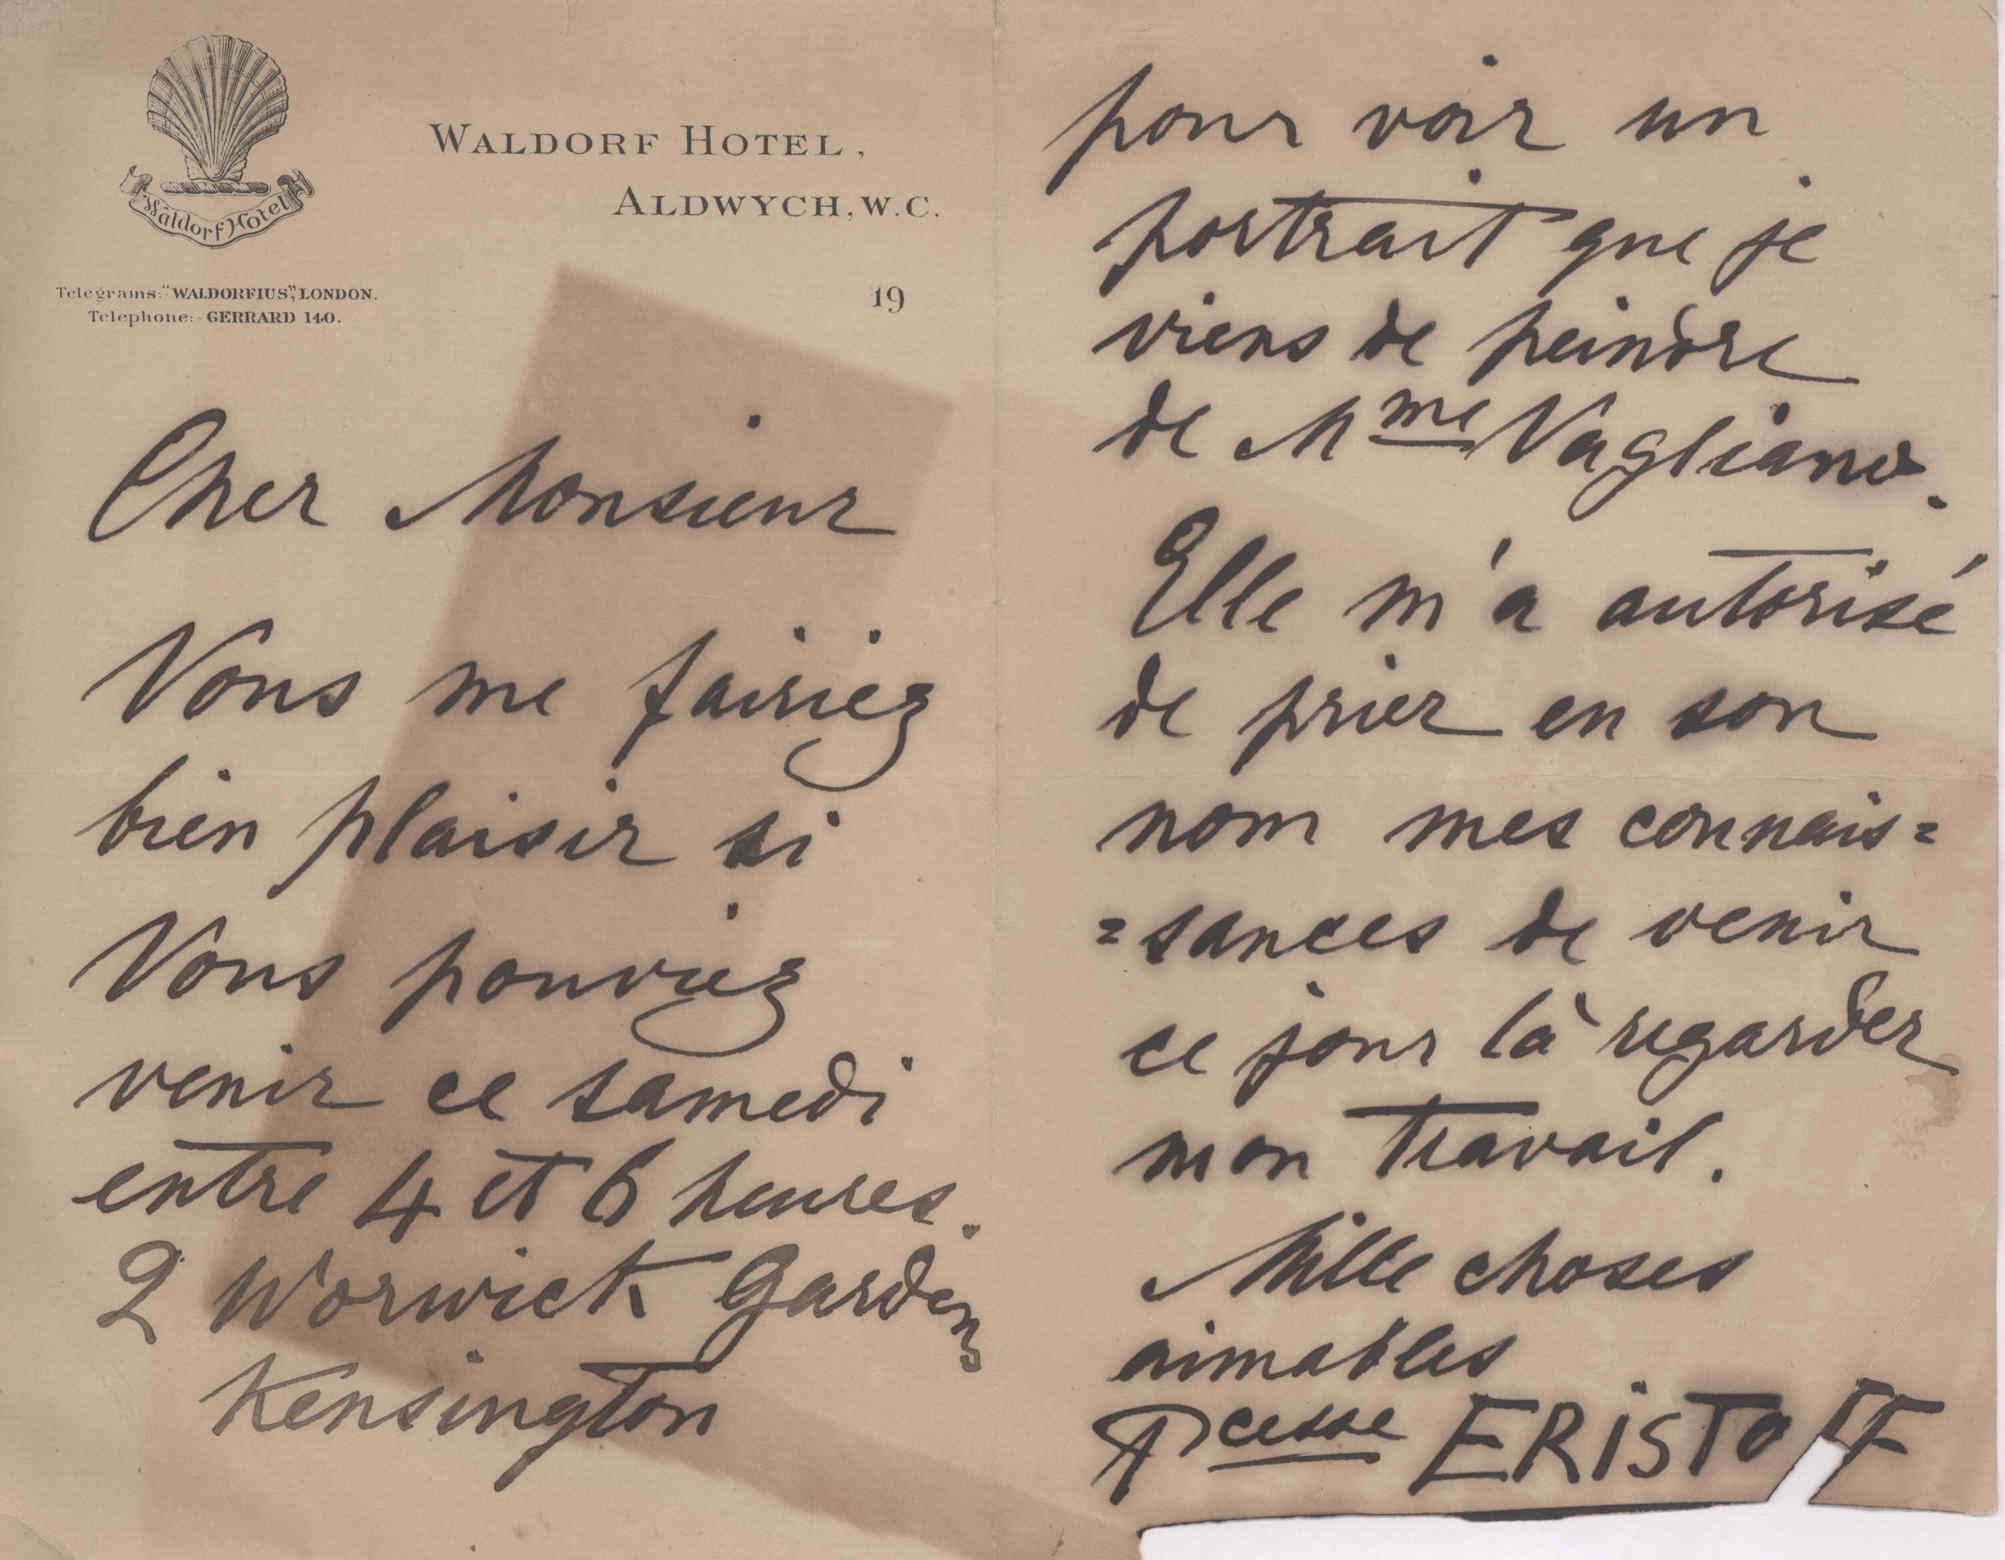 Waldorf Hotel
WALDORF HOTEL,
ALDWYCH, W.C.
Telegrams:-"WALDORFIUS", LONDON.
Telephone:- GERRARD 140.
19
Cher Monsieur
Vous me fairiez
bien plaisir si
Vous pouviez
venir ce samedi
entre 4 et 6 heures.
2 Worwick Gardens
Kensington
pour voir un
portrait que je
viens de peindre
de Mme Vagliano.
Elle m'a autorisé
de prier en son
nom mes connais=
=sances de venir
ce jour là regarder
mon travail.
Mille choses
aimables
Pcesse ERiSTOFF